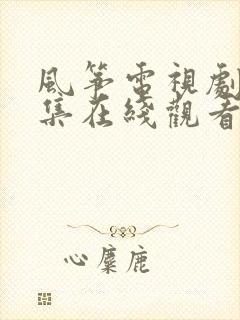 風筝電視劇
集在綫觀看
心麋鹿